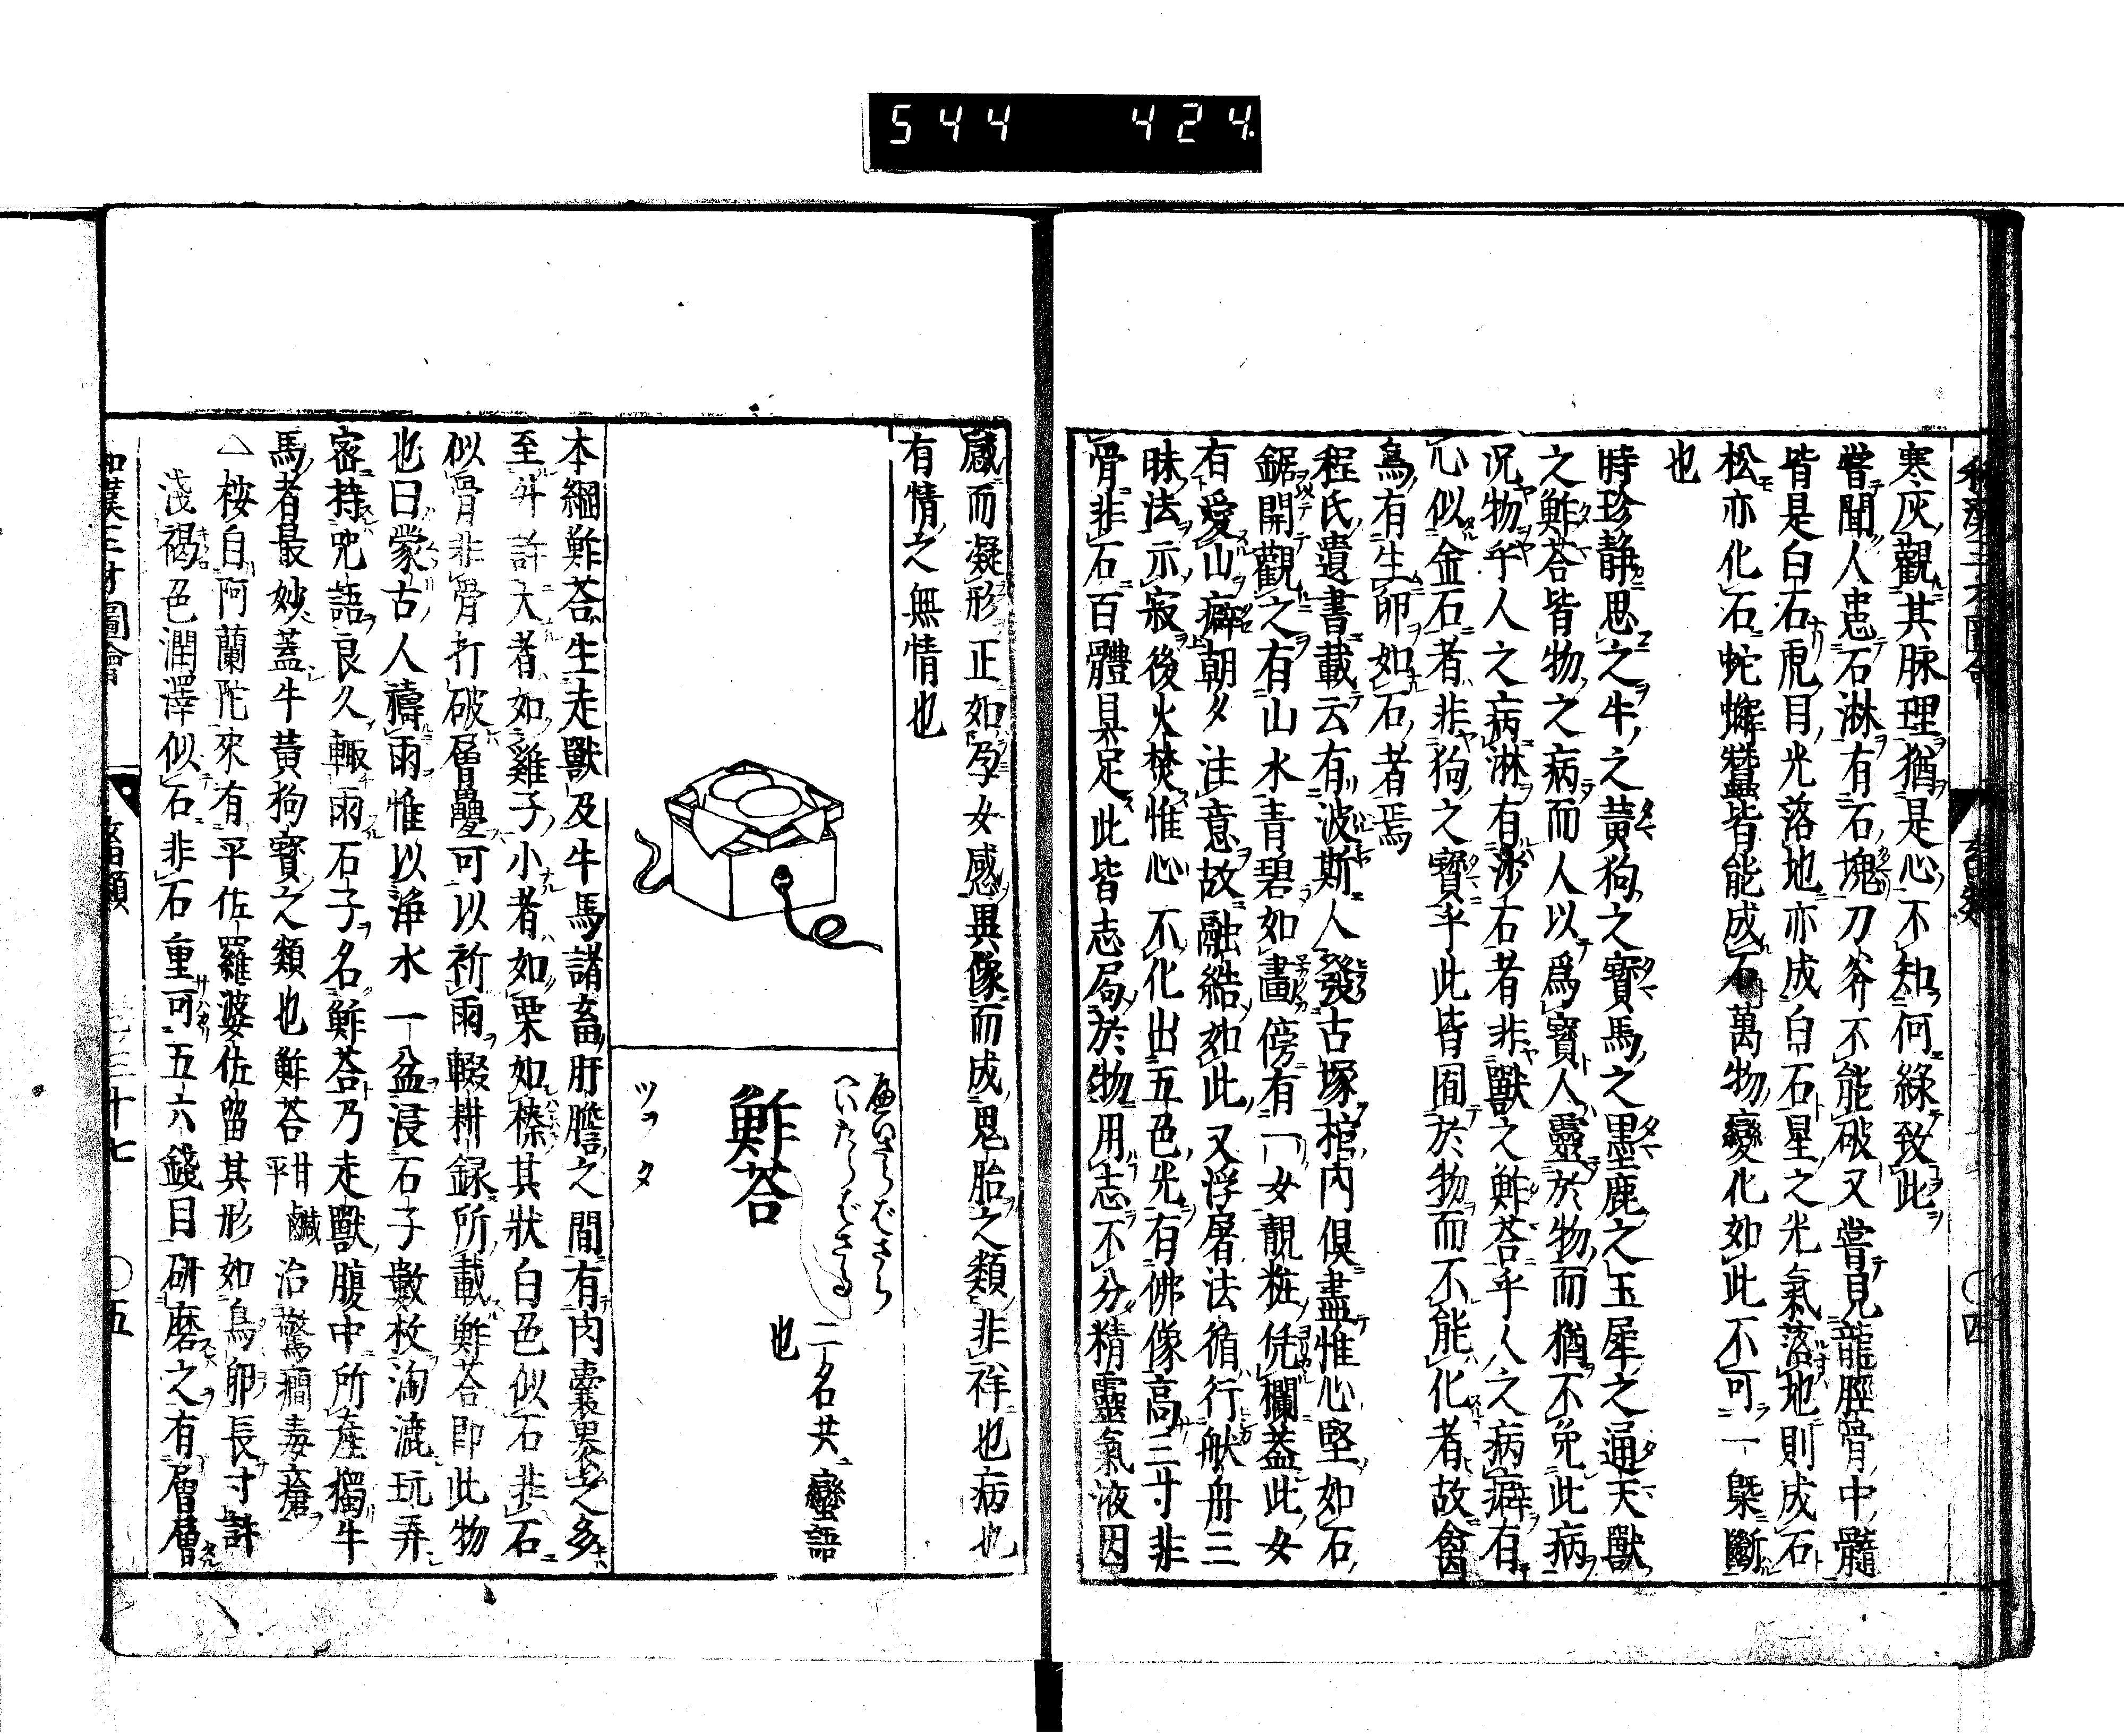 544 424
寒灰觀其脉理猶是心不知何緣致此
嘗聞人患石淋有石塊刀斧不能破又嘗見龍脛骨中髓
皆是白石虎目光落地亦成白石星之光氣落地則成石
松亦化石蛇蠏蠶皆能成石萬物變化如此不可一槩斷
也
時珍静思之牛之黃狗之寳馬之墨鹿之玉犀之通天獸
之鮓荅皆物之病而人以爲寳人靈於物而猶不免此病
况物乎人之病淋有沙石者非獸之鮓荅乎人之病癖有
心似金石者非狗之寳乎此皆囿於物而不能化者故禽
鳥有生卵如石者焉
程氏遺書載云有波斯人發古塚棺内俱盡惟心堅如石
鋸開觀之有山水青碧如畫傍有一女靚粧凭欄蓋此女
有愛山癖朝夕注意故融結如此又浮屠法循行般舟三
昧法示寂後火焚惟心不化出五色光有佛像高三寸非
骨非石百體具足此皆志局於物用志不分精靈氣液因
感而凝形正如孕女感異像而成鬼胎之類非祥也病也
有情之無情也
へいさらばさら
へいたらばさる
鮓荅
二名共蠻語
也
ツヲタ
本綱鮓荅生走獸及牛馬諸畜肝膽之間有肉嚢裹之多
至升許大者如雞子小者如栗如榛其狀白色似石非石
似骨非骨打破層疊可以祈雨輟耕録所載鮓荅即此物
也曰蒙古人禱雨惟以浄水一盆浸石子數枚淘漉玩弄
宻持呪語良久輙雨石子名鮓荅乃走獸腹中所產獨牛
馬者最妙蓋牛黃狗寳之類也鮓荅甘鹹平治驚癇毒瘡
△桉自阿蘭陀來有平佐羅婆佐留其形如鳥卵長寸許
淺褐色潤澤似石非石重可五六錢目研磨之有層層
和漢三才圖會
畜類
三十七
〇五